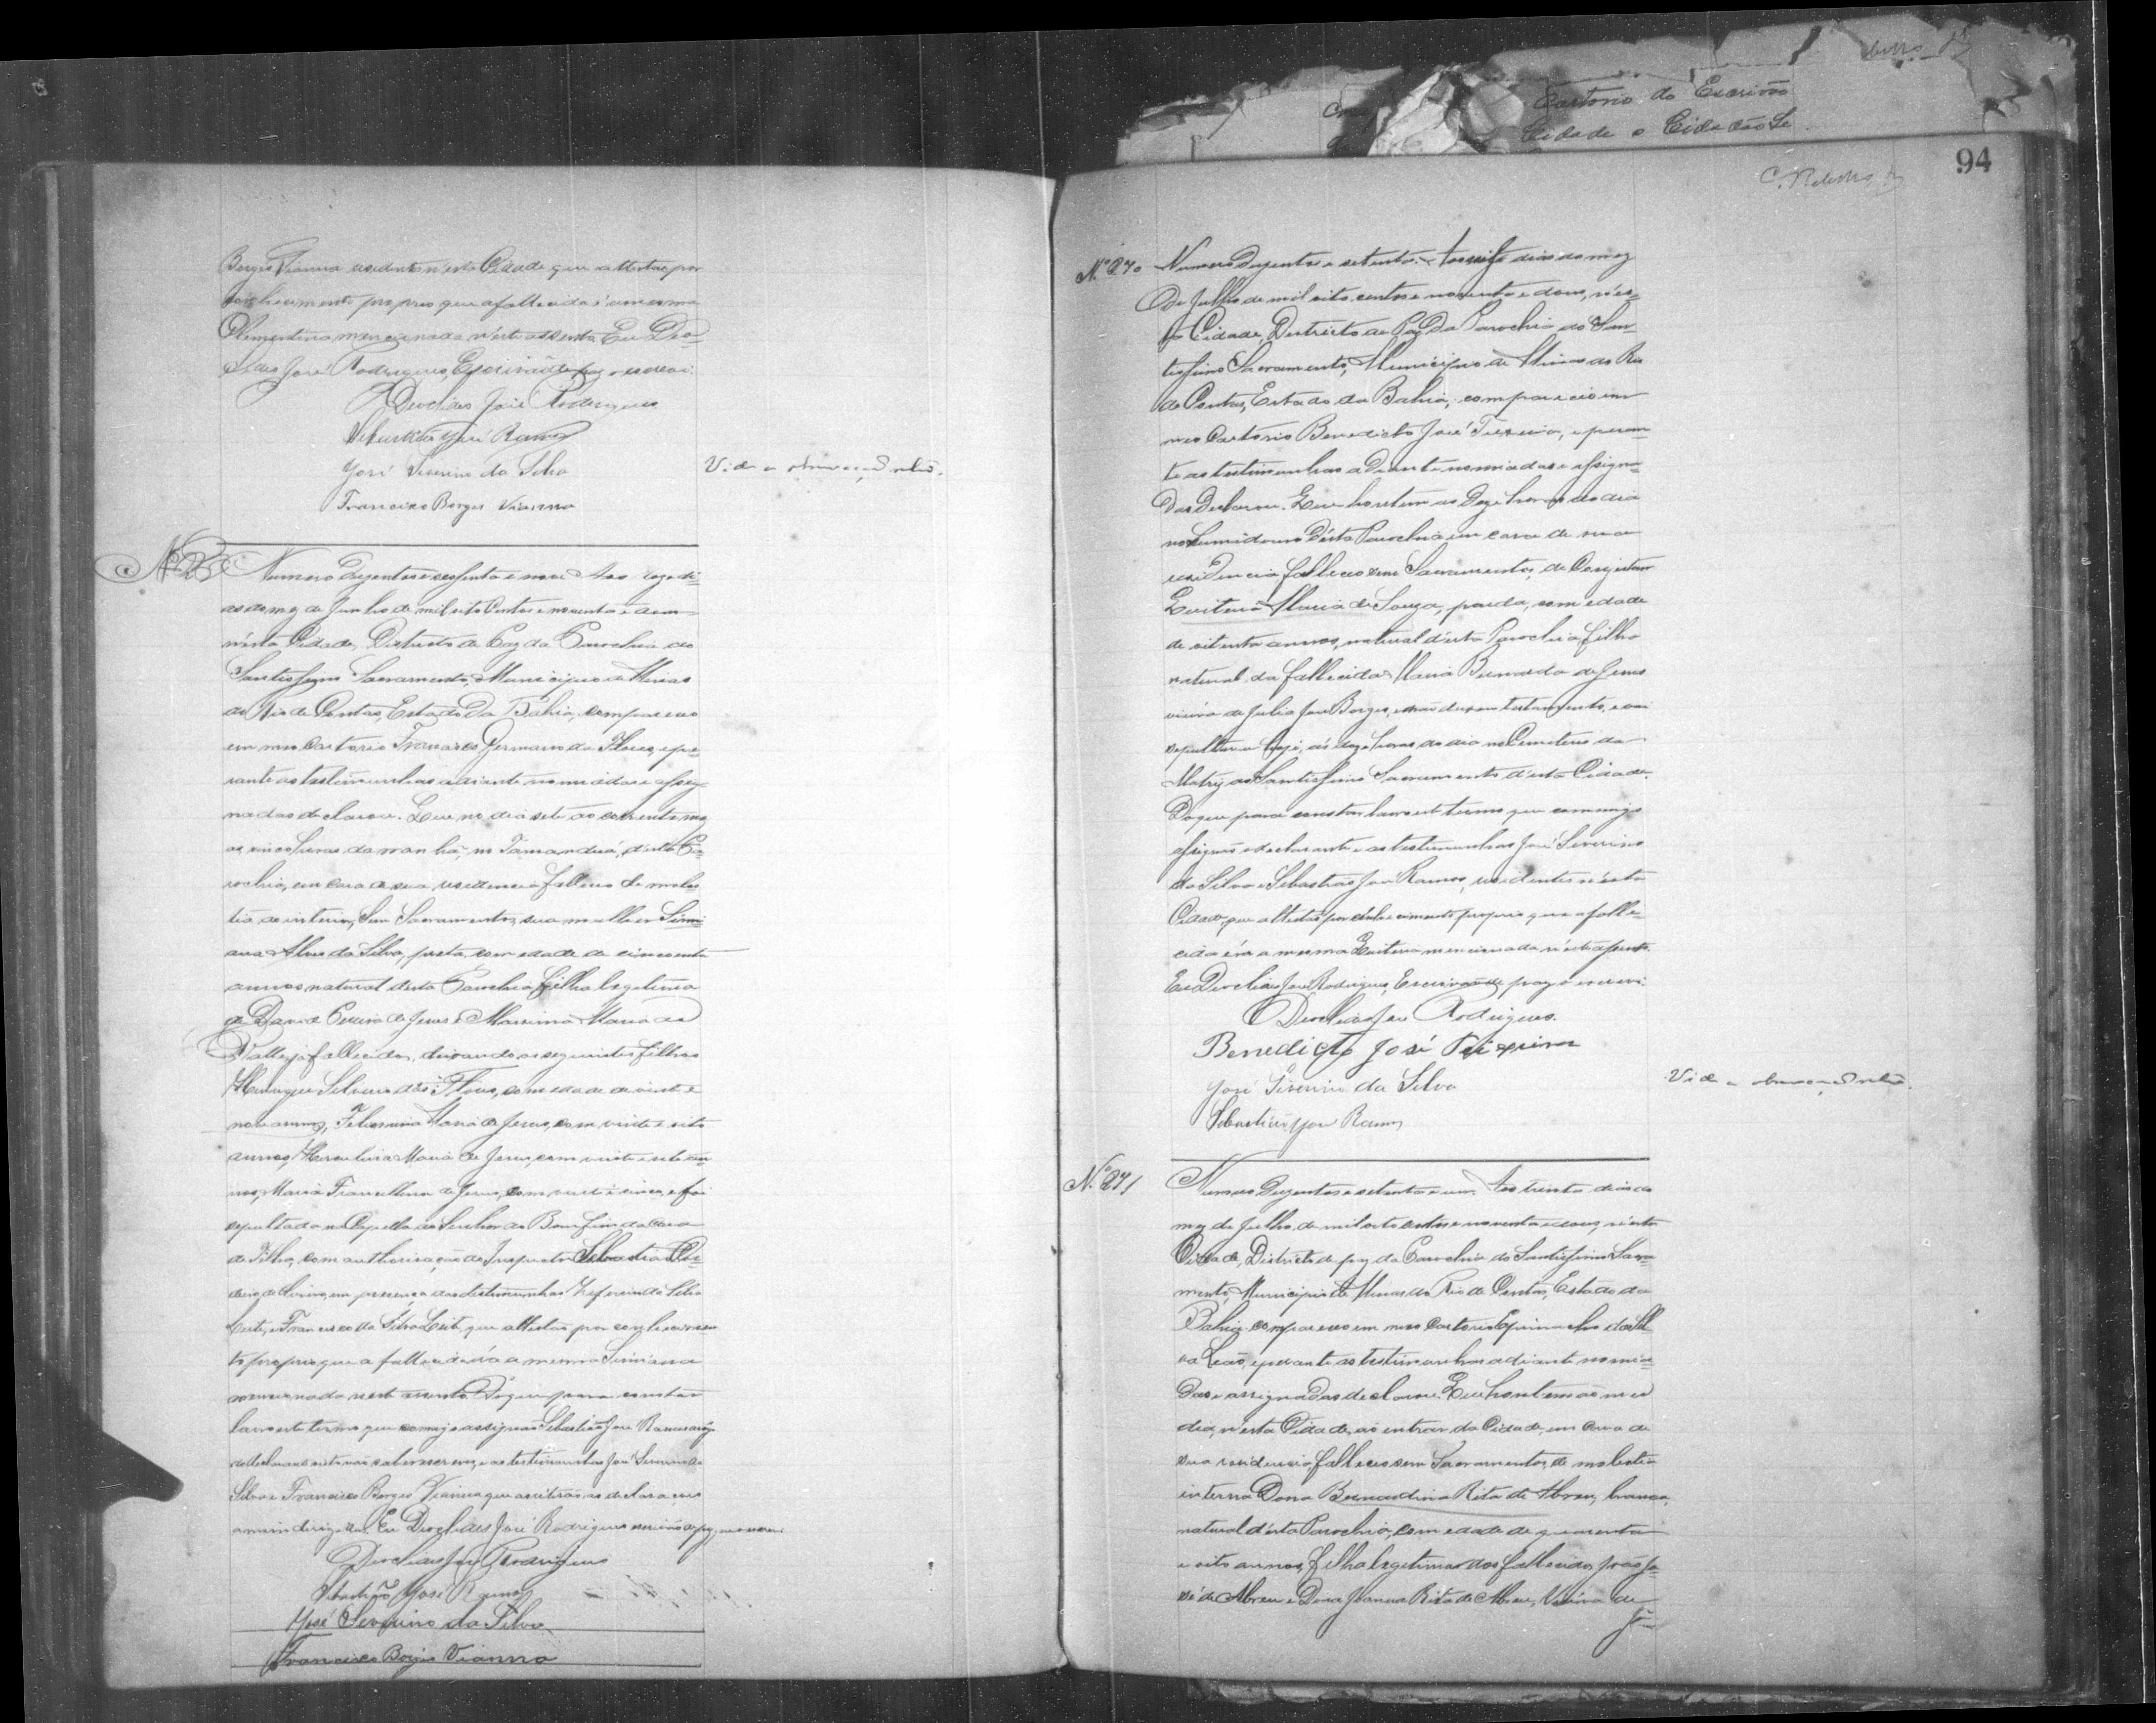 Cartorio do Escrivão
Cidade o Cidadão
94
Borges Vianna residentes n'esta Cidade, que attestão por
conhecimento proprio que a fallecida é a mesma
Clementina mencionada n'este assento. Eu Deo-
clides José Rodrigues, Escrivão de paz o escrevi.
Deoclides José Rodrigues
Sebastião José Ramos
José Severino da Silva
Francisco Borges Vianna
Vide a observação
Numero Duzentos e sessenta e nove. Aos onze di-
as do mez de Junho de mil oito Centos e noventa e dous
n'esta Cidade, Districto de Paz da Parochia do
Santissimo Sacramento, Municipio de Minas
do Rio de Contas, Estado da Bahia, compareceu
em meu Cartorio Francisco Germano da Flores, e pe-
rante as testemunhas adiante nomeiadas e assig-
nadas declarou: Que no dia sete do corrente mez
as cinco horas da manhã, no Tamanduá, d'esta Pa-
rochia, em casa de sua residencia falleceu de moles-
tia de interior, Sem Sacramentos, sua mulher
Alves da Silva, preta, com edade de cincoenta
annos natural desta Parochia filha legitima
de David Pereira de Jesus e Maxima Maria da
já fallecidos, deixando os seguintes filhos
Silveira das Flores, com edade de vinte e
nove annos, Filismina Maria de Jesus, com vinte e oito
annos, Herculina Maria de Jesus, com vinte e sete an-
nos, Maria Francellina de Jesus, com vinte e cinco, e foi
sepultada na Capella do Senhor do Bom fim da
do Filho, com authorisação do Inspector Sebastião
em presença das testimunhas Zeferino da Silva
Leite, e Francisco da Silva Leite, que attestão por conhecimen-
to proprio que a fallecida éra a mesma
mencionada neste assento. Do que para constar
lavro este termo que comigo assignão Sebastião José Ramos a rogo
do declarante por não saber escrever, e as testimunhas José Severino da
Silva e Francisco Borges Vianna que
a mim dirigidas. Eu Deoclides José Rodrigues escrivão de paz, que o escrevi
Deoclides José Rodrigues
Sebastião José Ramos
José Severino da Silva
Francisco Borges Vianna
N.º 270 Numero Duzentos e setenta. Aos dias do mez
de Julho de mil oito centos e noventa e dous, n'es-
ta Cidade, Districto de Paz da Parochia do San-
tissimo Sacramento, Municipio de Minas do Rio
de Contas, Estado da Bahia, compareceo em
meo Cartorio Benedicto José Teixeira, e peran-
te as testimunhas a Diante nomeiadas e assigna-
das Declarou: Que hontem as Doze horas do dia
no Sumidouro D'esta Parochia em casa de sua
residencia falleceo sem Sacramentos, de
Quiteria Maria de Souza, parda, com edade
de oitenta annos, natural d'esta Parochia, filha
natural da fallecida Maria Bernarda de Jesus
viuva de Julio José Borges, e não deixou testamento, e vai
sepultar-se hoje, ás doze horas do dia no Cemiterio da
Matriz do Santissimo Sacramento d'esta Cidade.
Do que para constar lavro este termo que commigo
assignão o declarante e as testimunhas José Severino
da Silva e Sebastião José Ramos, residentes n'esta
Cidade, que attestão por conhecimento proprio que a falle-
cida éra a mesma Quiteria mencionada n'este assento.
Eu Deoclides José Rodrigues, Escrivão de paz o escrevi.
Deoclides José Rodrigues.
Benedicto José Teixeira
José Severino da Silva
Sebastião José Ramos
Vide a observação
N.º 271 Numero Duzentos e setenta e um. Aos trinta dias do
mez de Julho de mil oito centos e noventa e dous, n'esta
Cidade, Districto de paz da Parochia do Santissimo Sacra-
mento, Municipio de Minas do Rio de Contas, Estado da
Bahia, compareceo em meo Cartorio Epiminondas da Sil-
va Leão, e perante as testimunhas adiante nomeia-
das e assignadas declarou: Que hontem ao meio
dia, n'esta Cidade, ao entrar da Cidade, em casa de
sua residencia, falleceo sem Sacramentos, de molestia
interna Dona Bernardina Rita de Abreu, branca,
natural d'esta Parochia, com edade de quarenta
e oito annos, filha legitima dos fallecidos João Jo-
sé de Abreu e Dona Joanna Rita de Abreu, Viuva de